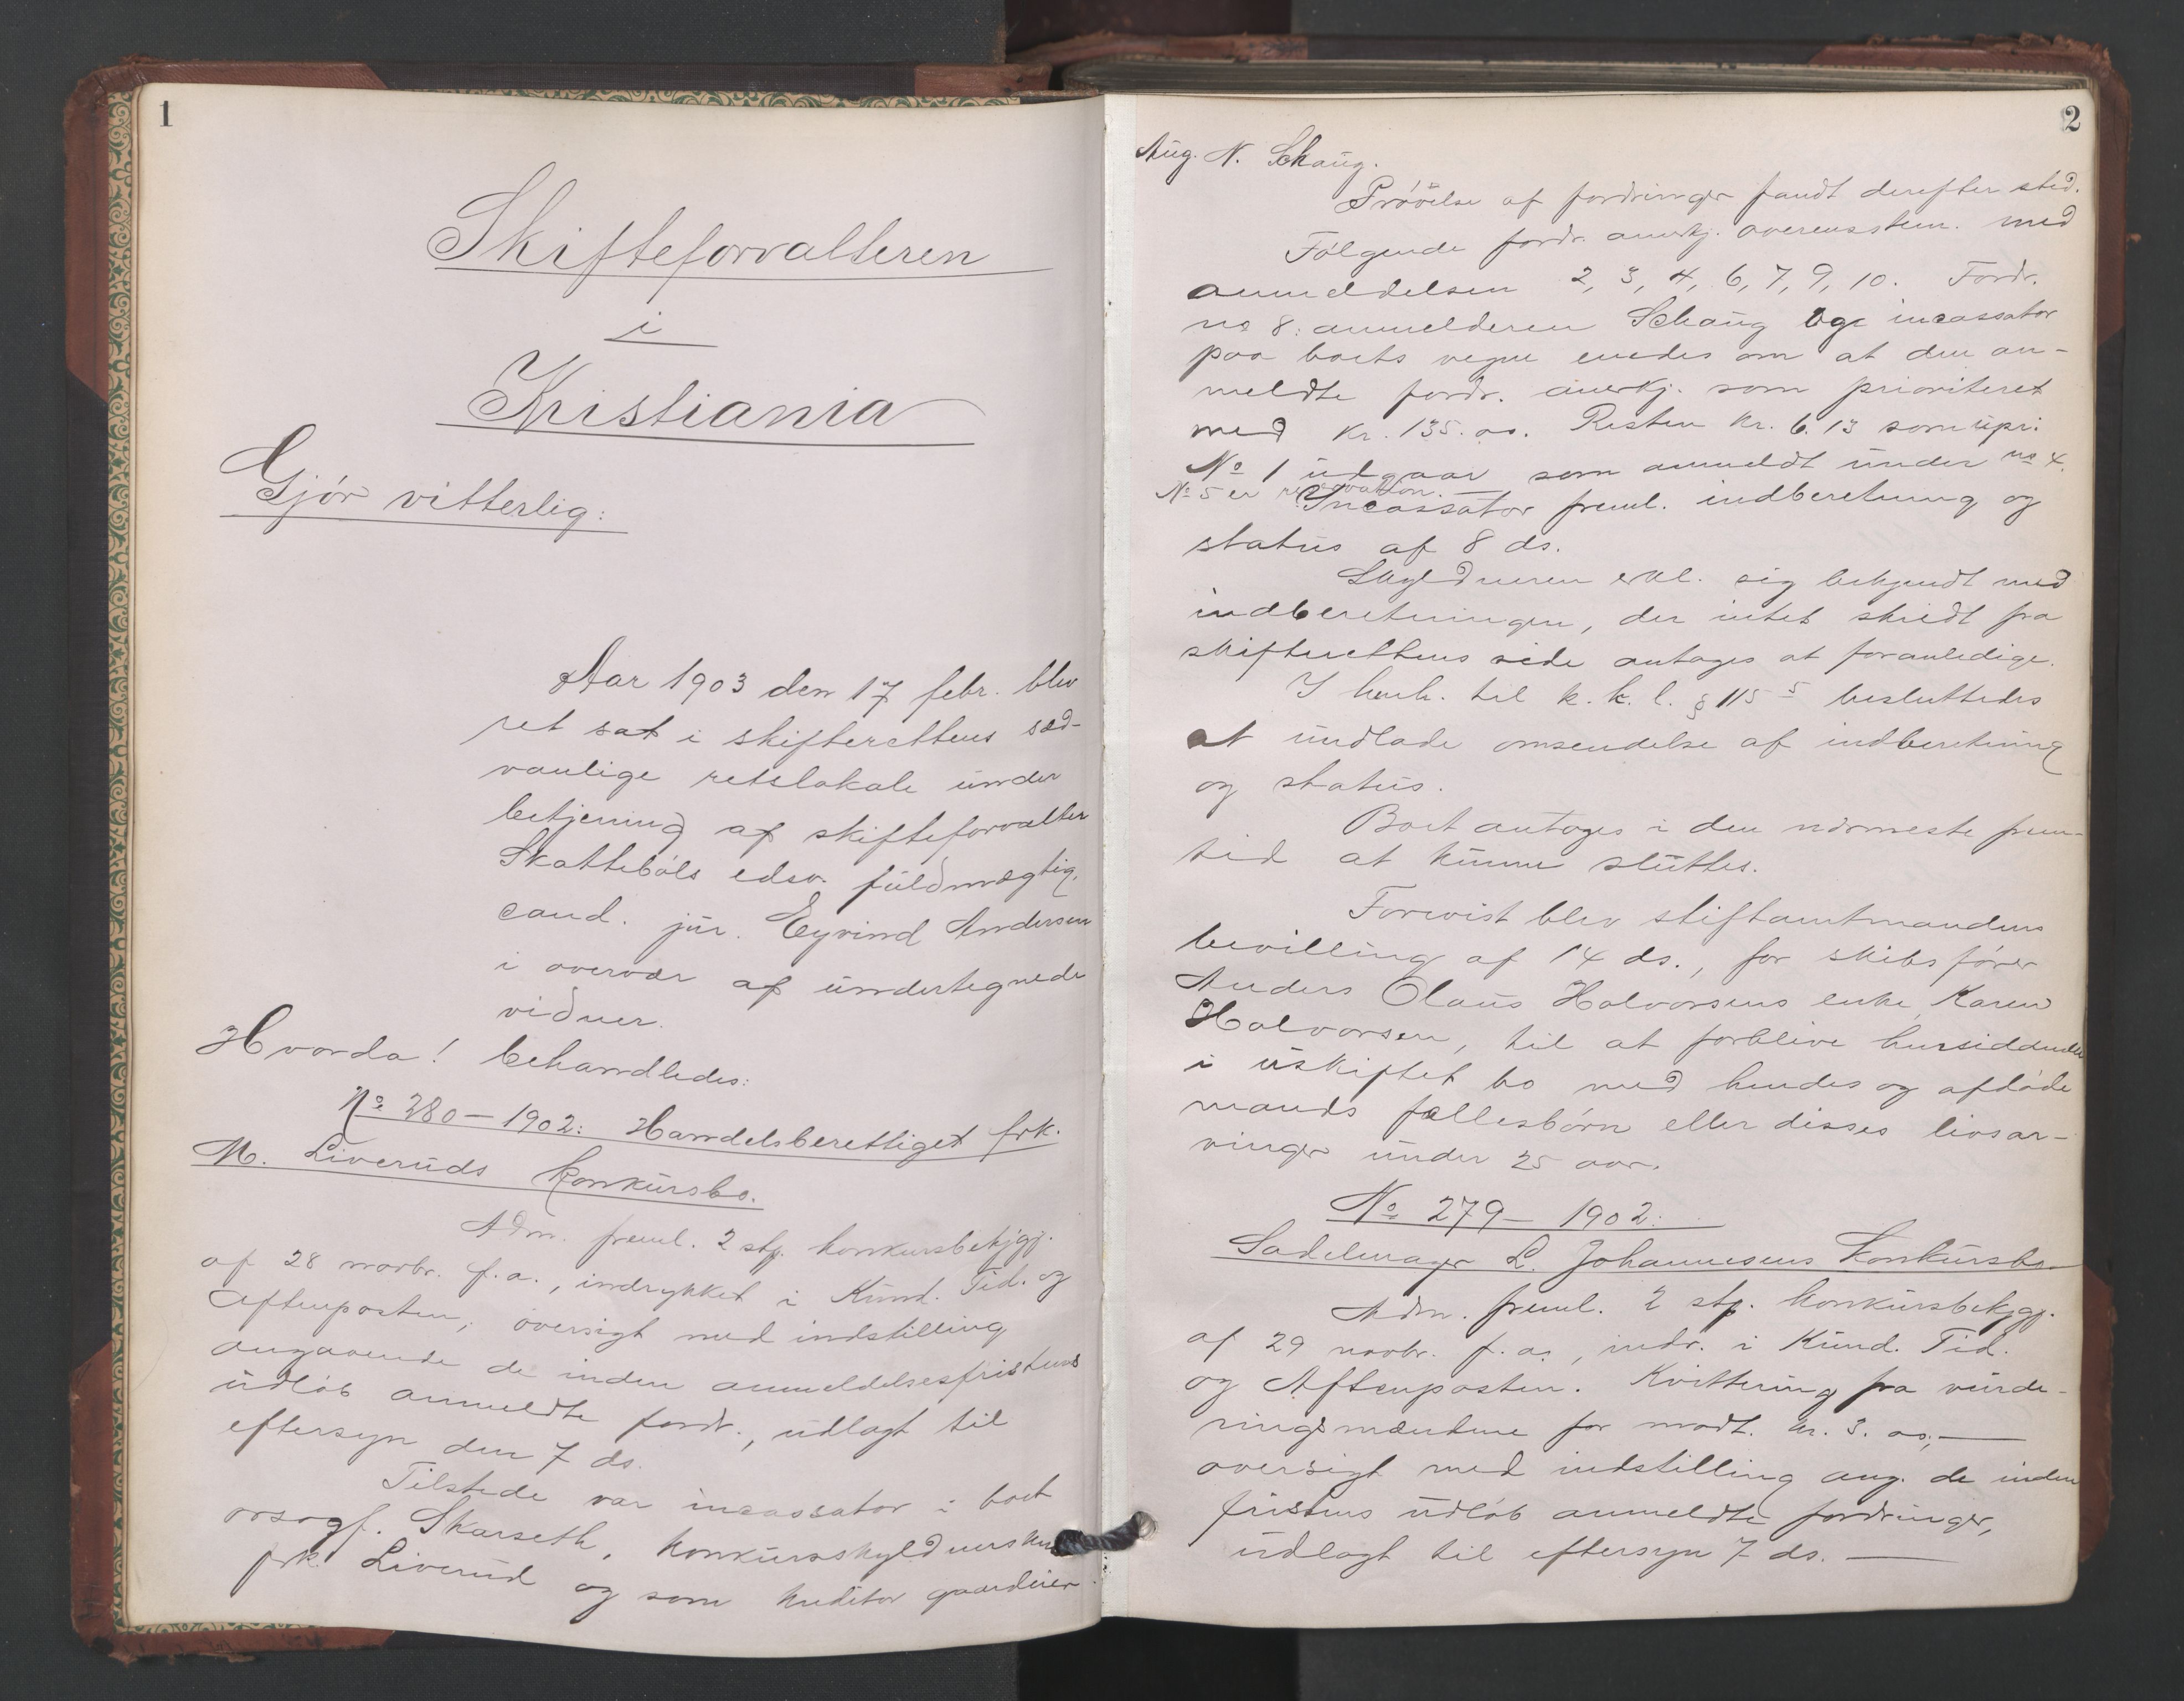 1
Skifteforvalteren
i
Kristiania
Gjör vitterlig:
Aar 1903 den 17 febr. blev
ret sat i skifterettens sæd-
vanlige retslokale under
betjening af skifteforvalter
Skattebøls edsv. fuldmægtig,
cand. jur. Eyvind Andersen
i overvær af undertegnede
vidner.
Hvorda! behandledes:
No 280 – 1902: Handelsberettiget frk.
M. Liveruds konkursbo.
Adm. freml. 2 stp. konkursbekjgj.
af 28 novbr. f.a., indrykket i Kund. Tid. og
Aftenposten, oversigt med indstilling
angaaende de inden anmeldelsesfristens
udløb anmeldte fordr., udlagt til
eftersyn den 7 ds.
Tilstede var incassator i boet
orsagf. Skarseth, konkursskyldnersken
frk. Liverud og som kreditor gaardeier
2
Aug. N. Schaug.
Prøvelse af fordringer fandt derefter sted.
Følgende fordr. anerkj. overensstem. med
anmeldelsen 2, 3, 4, 6, 7, 9, 10. Fordr.
no 8: anmelderen Schaug og incassator
paa boets vegne enedes om at den an-
meldte fordr. anerkj. som prioriteret
med kr. 135.00. Resten kr. 6.13 som upr:
No 1 udgaar som anmeldt under no 4.
No 5 er reservation.
Incassator freml. indberetning og
status af 8 ds.
Skyldneren erkl. sig bekjendt med
indberetningen, der intet skridt fra
skifterettens side antages at foranledige.
I henh. til k.k.l. § 115 5 besluttedes
at undlade omsendelse af indberetning
og status.
Boet antages i den nærmeste frem-
tid at kunne sluttes.
Forevist blev stiftamtmandens
bevilling af 14 ds., for skibsfører
Anders Olaus Halvorsens enke, Karen
Halvorsen, til at forblive hensiddende
i uskiftet bo med hendes og afdøde
mands fællesbørn eller disses livsar-
vinger under 25 aar.
No 279 – 1902:
Sadelmager L. Johannesens konkursbo.
Adm. freml. 2 stp. konkursbekjgj.
af 29 novbr. f.a., indr. i Kund. Tid.
og Aftenposten. Kvittering fra vurde-
ringsmændene for modt. kr. 3.00, —
oversigt med indstilling ang. de inden
fristens udløb anmeldte fordringer,
udlagt til eftersyn 7 ds. —